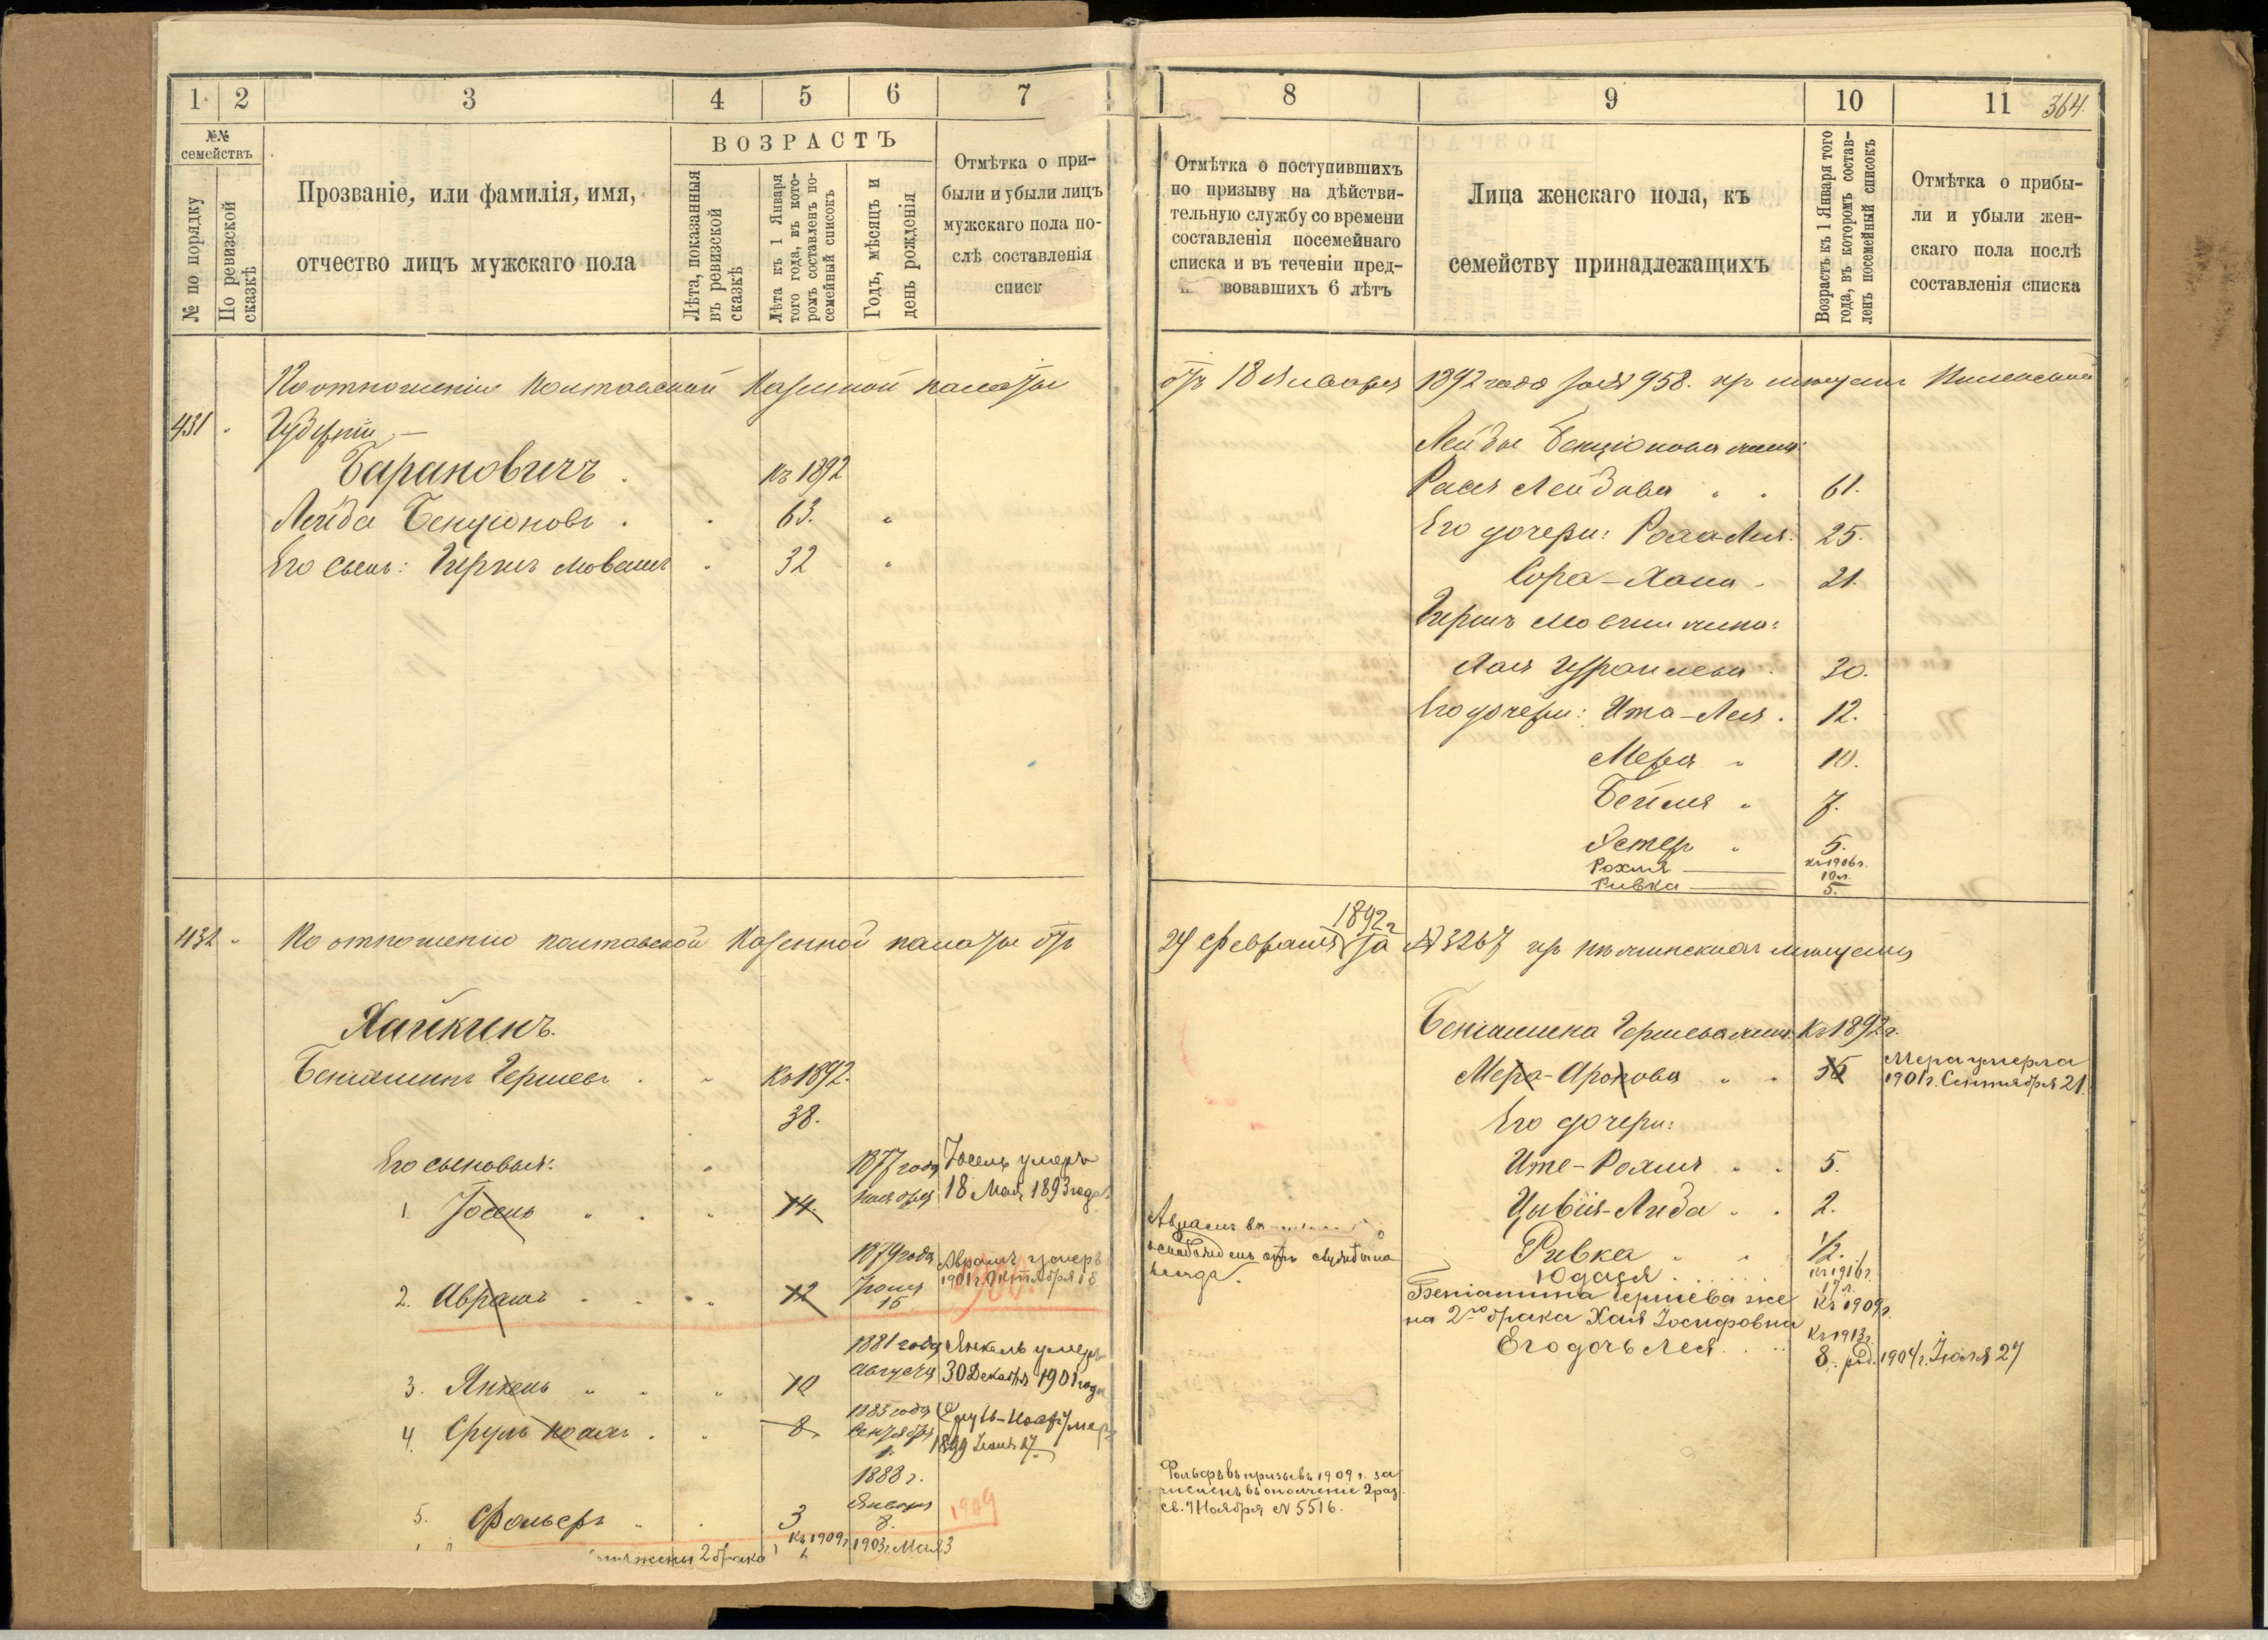 1 2 3 4 5 6 7
№№ семействъ
№ по порядку
По ревизской сказкѣ
Прозваніе, или фамилія, имя,
отчество лицъ мужскаго пола
ВОЗРАСТЪ
Лѣта, показанныя
въ ревизской
сказкѣ
Лѣта къ 1 Января
того года, въ кото-
ромъ составленъ по-
семейный списокъ
Годъ, мѣсяцъ и
день рожденія
Отмѣтка о при-
были и убыли лицъ
мужскаго пола по-
слѣ составленія
списк
По отношенію Полтавской Казенной палаты
431 Губерніи
Барановичъ
къ 1892
Лейба Бенціоновъ 63.
Его сынъ: Гиршъ Мовша 32
432 По отношенію полтавской Казенной палаты отъ
Хайкинъ.
Беніаминъ Гершевъ къ 1892.
38.
Его сыновья: 1877 года Іосель умеръ
1. Іосель 14. 18 Мая 1893 года
1879 года Абрамъ умеръ
2. Абрамъ 12 15 1901 г. Октября 18
1881 года Янкель умеръ
3. Янкель 10 Августа 30 Декабря 1901 года
1883 года
4. Сруль 8 Сентября 1. умеръ
1899 Іюня 27
1888 г.
Января
5. Фольфъ 3 8. 1909
жены 2 брака Къ 1909 г. 1903 г. Мая 3
8 9 10 11 364.
Отмѣтка о поступившихъ
по призыву на дѣйстви-
тельную службу со времени
составленія посемейнаго
списка и въ теченіи пред-
вовавшихъ 6 лѣтъ
Лица женскаго пола, къ
семейству принадлежащихъ
Возрастъ къ 1 Января того
года, въ которомъ состав-
ленъ посемейный списокъ
Отмѣтка о прибы-
ли и убыли жен-
скаго пола послѣ
составленія списка
отъ 18 Января 1892 года за № 958.
Лейбы Бенціонова жена:
Рася Лейбова 61.
Его дочери: Роса-Лея 25.
Сора-Хана 21.
Гирша Мовши жена:
Хая Израилева 30.
Его дочери: Ита-Лея 12.
Мера 10.
Бейля 7.
Эстер 5.
къ 1906 г.
Рохля 10 л.
Ривка 5.
1892 г
24 Февраля за № 3267
Беніамина Гершева жена Къ 1892 г.
Мера-Аронова 35 Мера умерла
1901 г. Сентября 21.
Его дочери:
Ите-Рохля 5.
Цывія-Либа 2.
Абрамъ
освобожденъ отъ службы на
всегда.
Ривка 1/2.
Юдася къ 1916 г.
17 л.
Беніамина Гершева же Къ 1909 г.
на 2го брака Хая Іосифовна
Къ 1913 г.
Его дочь Лея 8. род. 1904 г. Іюля 27
Фольфъ въ призывъ 1909 г. за
численъ въ ополченіе 2 раз.
св. 7 Ноября № 5516.